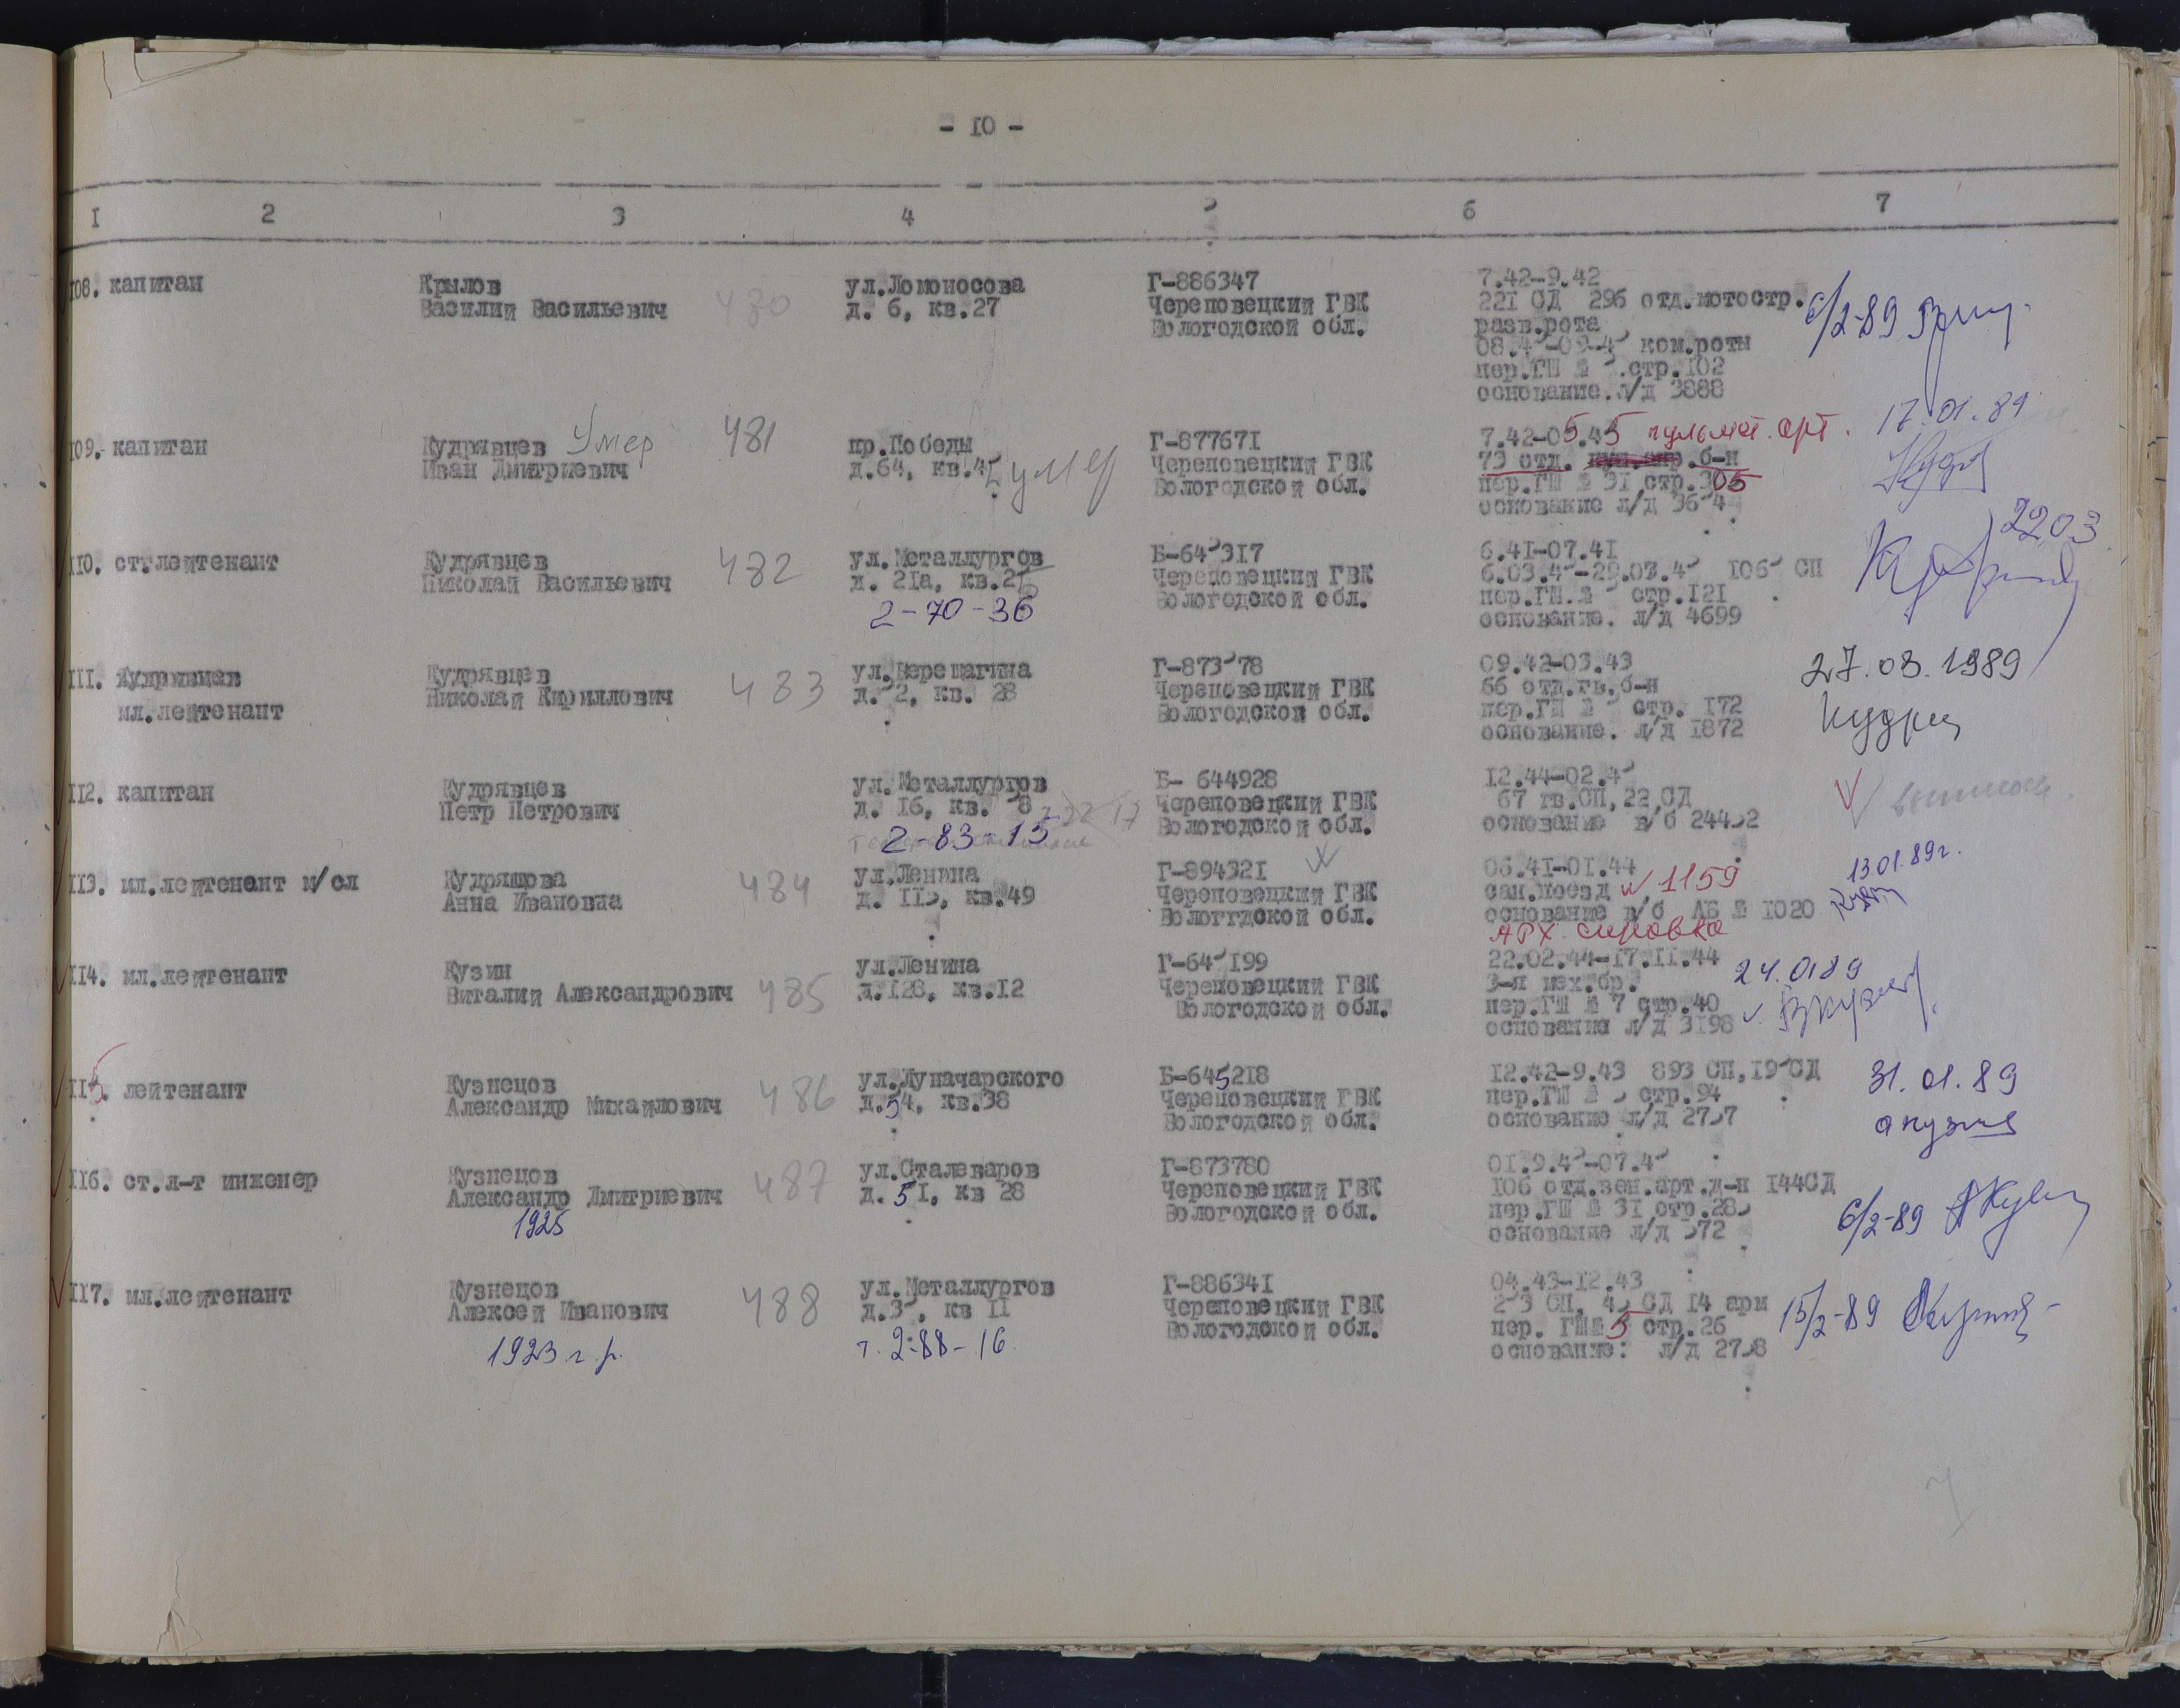 - 10 -
1 2 3 4 5 6 7
108. капитан
Крылов
Василий Васильевич
480
ул.Ломоносова
д. 6, кв.27
Г-886347
Череповецкий ГВК
Вологодской обл.
7.42-9.42
221 СД 296 отд.мотостр.
разв.рота
ком.роты
пер.ГШ № стр.102
основание.л/д 3888
6/2-89
109. капитан
Кудрявцев Умер
Иван Дмитриевич
481
пр.Победы
д.64, кв.45 умер
Г-877671
Череповецкий ГВК
Вологодской обл.
7.42-05.45 пульмат. арт.
73 отд. б-н
пер.ГШ № 31 стр.305
основание л/д
17.01.89
110. ст.лейтенант
Кудрявцев
Николай Васильевич
482
ул.Металлургов
д. 21а, кв.
2-70-36
Б-645317
Череповецкий ГВК
Вологодской обл.
6.41-07.41
6.03.45-29.03.45 1065 СП
пер.ГШ.№ 5 стр.121
основание. л/д 4699
2203
111. Кудрявцев
мл.лейтенант
Кудрявцев
Николай Кириллович
483
ул.Верещагина
д. 2, кв. 28
Г-873578
Череповецкий ГВК
Вологодской обл.
09.42-03.43
66 отд.гв.б-н
пер.ГШ № 5 стр. 172
основание. л/д 1872
27.03.1989
112. капитан
Кудрявцев
Петр Петрович
ул.Металлургов
д. 16, кв. 8
2-83-15
Б- 644928
Череповецкий ГВК
Вологодской обл.
12.44-02.45
67 гв.СП, 22 СД
основание в/б 24452
113. мл.лейтенант м/сл
Кудряшова
Анна Ивановна
484
ул.Ленина
д. 115, кв.49
Г-894321
Череповецкий ГВК
Вологгдской обл.
06.41-01.44
сан.поезд 1159
основание в/б АБ № 1020
АРХ. справка
13.01.89г.
114. мл.лейтенант
Кузин
Виталий Александрович
485
ул.Ленина
д.128, кв.12
Г-645199
Череповецкий ГВК
Вологодской обл.
22.02.44-17.11.44
3-я мех.бр.
пер.ГШ № 7 стр.40
основание л/д 3198
24.0189
115. лейтенант
Кузнецов
Александр Михайлович
486
ул.Луначарского
д.54, кв.38
Б-645218
Череповецкий ГВК
Вологодской обл.
12.42-9.43 893 СП,195СД
пер.ГШ № 5 стр.94
основание л/д 2757
31.01.89
116. ст.л-т инженер
Кузнецов
Александр Дмитриевич
1925
487
ул.Сталеваров
д. 51, кв 28
Г-873780
Череповецкий ГВК
Вологодской обл.
106 отд.зен.арт.д-н 144СД
пер.ГШ № 31 стр.285
основание л/д 572
6/2-89
117. мл.лейтенант
Кузнецов
Алексей Иванович
1923 г.р.
488
ул.Металлургов
д.35, кв 11
т. 2-88-16
Г-886341
Череповецкий ГВК
Вологодской обл.
04.43-12.43
253 СП, 45 СД 14 арм
пер. ГШ№ 5 стр.26
основание: л/д 2758
15/2-89